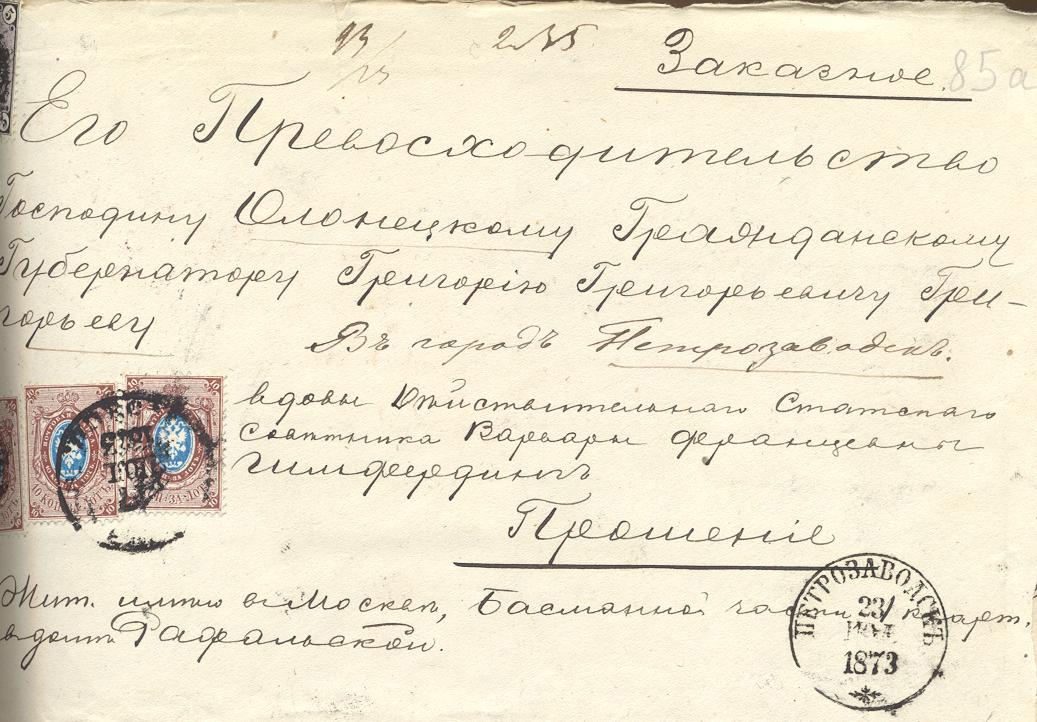 93/ 2 № 5
Заказное. 85а
Его Превосходительство
Господину Олонецкому Гражданскому
Губернатору Григорію Григорьевичу Гри-
горьеву
Въ городъ Петрозаводскъ.
вдовы Дѣйствительнаго Статскаго
Совѣтника Варвары Францевны
Гильфердингъ
Прошеніе
Жит. имѣю въ Москвѣ, Басманной части
в домѣ Рафальской.
ПЕТРОЗАВОДСКЪ
23/
ІЮЛ
1873